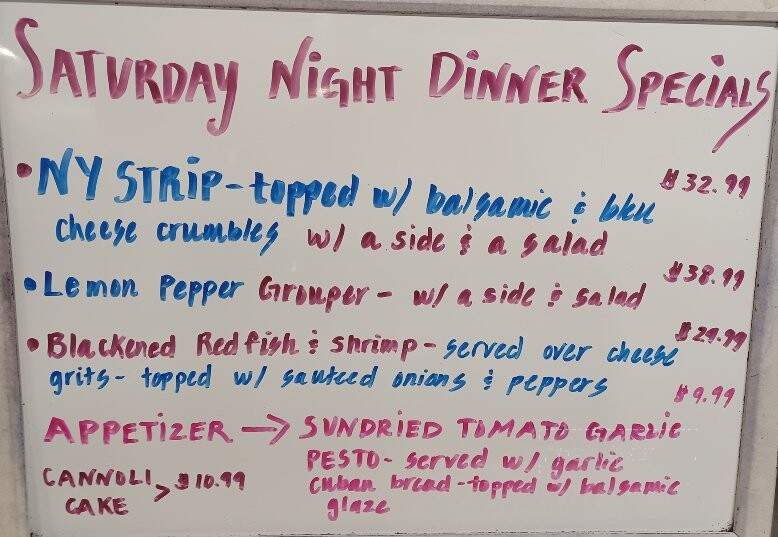 SATURDAY NIGHT DINNER SPECIALS
• NY STRIP - topped w/ balsamic & bleu $32.99
cheese crumbles w/ a side & a salad
• Lemon Pepper Grouper - w/ a side & salad $38.99
• Blackened Redfish & shrimp - served over cheese $29.99
grits - topped w/ sauteed onions & peppers
APPETIZER → SUNDRIED TOMATO GARLIC $9.99
PESTO - served w/ garlic
cuban bread - topped w/ balsamic
glaze
CANNOLI > $10.99
CAKE